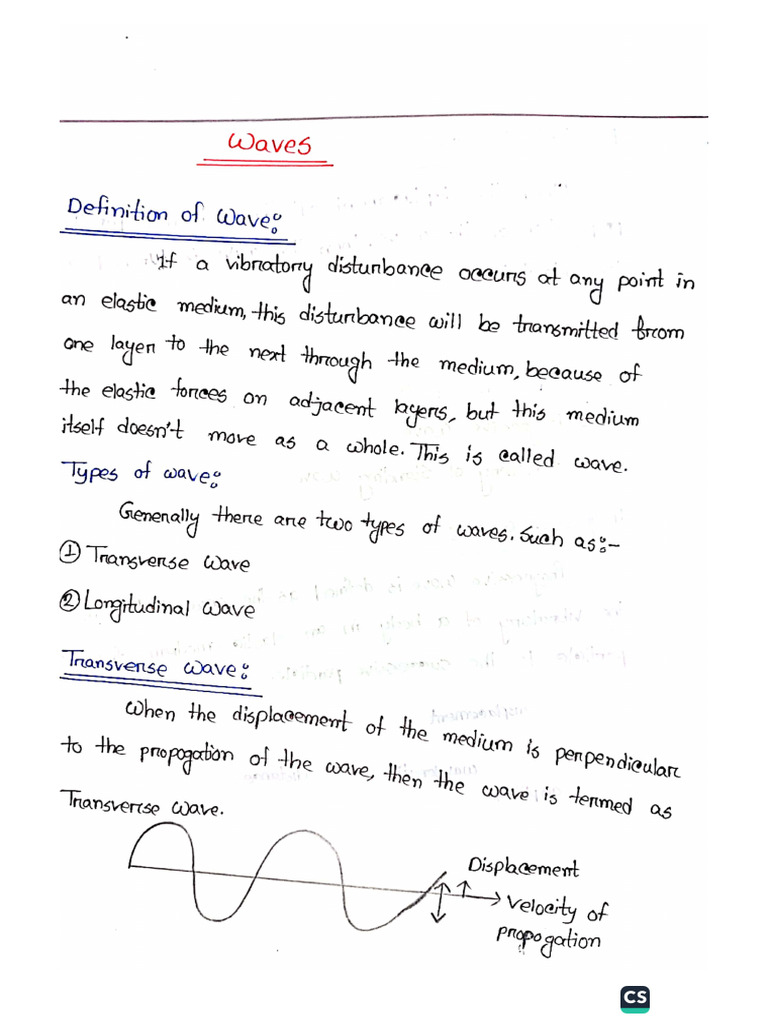 Waves
Definition of Wave:
If a vibratory disturbance occurs at any point in
an elastic medium, this disturbance will be transmitted from
one layer to the next through the medium, because of
the elastic forces on adjacent layers, but this medium
itself doesn't move as a whole. This is called wave.
Types of wave:
Generally there are two types of waves. Such as:-
① Transverse wave
② Longitudinal wave
Transverse wave:
When the displacement of the medium is perpendicular
to the propogation of the wave, then the wave is termed as
Transverse wave.
Displacement
Velocity of
propogation
CS